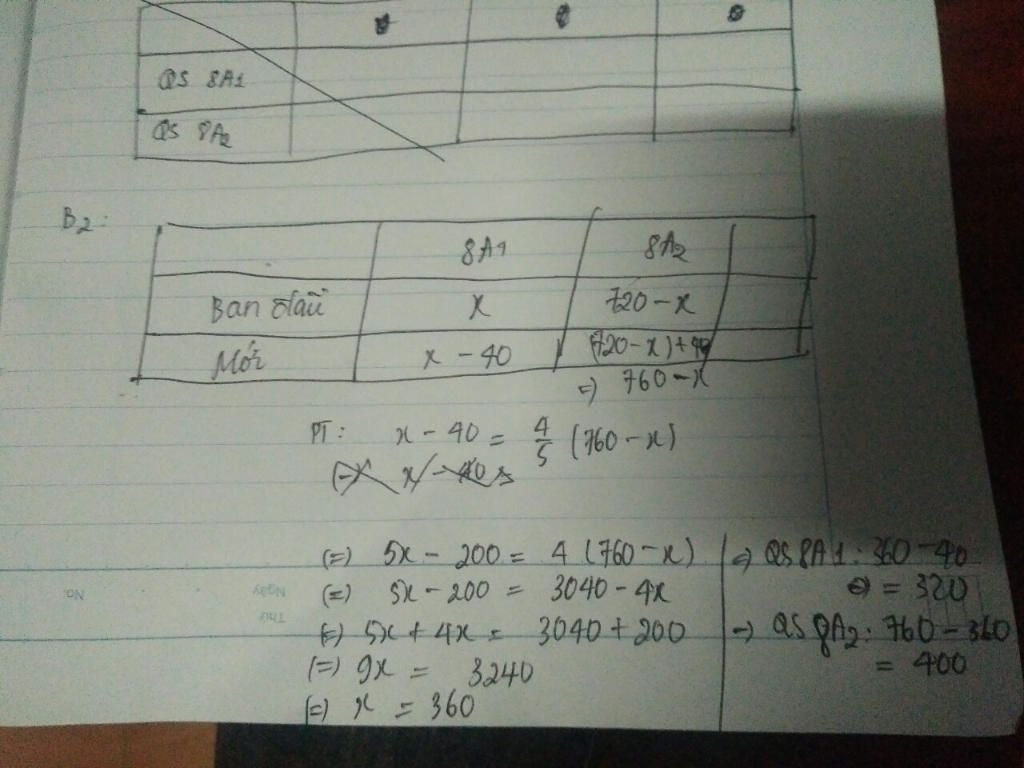 QS 8A1
QS 8A2
B2:
8A1 8A2
Ban đầu x 720 - x
Mới x - 40 (720 - x) + 40
=) 760 - x
PT: x - 40 = 4/5 (760 - x)
(=) 5x - 200 = 4 (760 - x)
(=) 5x - 200 = 3040 - 4x
(=) 5x + 4x = 3040 + 200
(=) 9x = 3240
(=) x = 360
=) QS 8A1: 360 - 40
= 320
=) QS 8A2: 760 - 360
= 400
Ngày
Thứ
No.